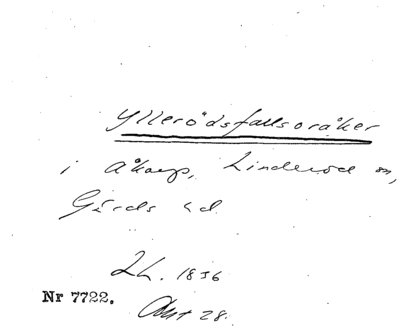 Yllerödsfallsoråker
i Åkarp, Linderöd sn,
Gärds hd
LH. 1836
Nr 7722.
Akt 28.